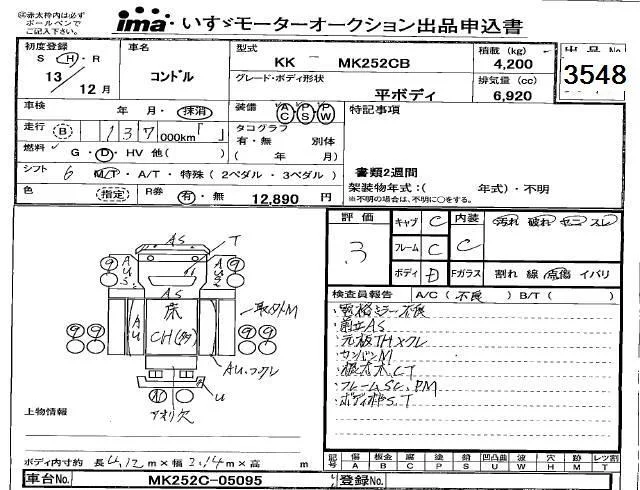 ㊟赤太枠内は必ず
ボールペンで
ご記入下さい。
ima いすゞモーターオークション出品申込書
初度登録 車名 型式 積載 (kg) 出品No
S・H・R コンドル KK ー MK252CB 4,200
13/12月 グレード・ボディ形状 排気量 (cc) 3548
平ボディ 6,920
車検 年・月・抹消 装備 AC PS PW 特記事項
走行 B 137,000km「 」 タコグラフ
有・無 別体
燃料 G・D・HV 他( ) ( 年 月)
シフト 6 M/T・A/T・特殊 ( 2ペダル・3ペダル ) 書類2週間
架装物年式:( 年式)・不明
※不明の場合は、不明に○をする。
色 (指定) R券 有・無 12,890 円
評価 キャブ C 内装 汚れ 破れ ヤニ スレ
3 フレーム C C
ボディ D Fガラス 割れ 線 点傷 イバリ
検査員報告 A/C ( 不良 ) B/T ( )
・電格ミラー不良
・前立AS
・カンバンM
・フレームSC、PM
・ボディ枠S、T
AS T
AS
床
取外M
U
アオリ欠
上物情報
ボディ内寸約 長4.12m×幅2.14m×高 m
記号 傷 板金 腐 塗 錆 凹凸曲 波 穴 跡 レツ割
A B C P S U W H M T
車台No. MK252C-05095 登録No.